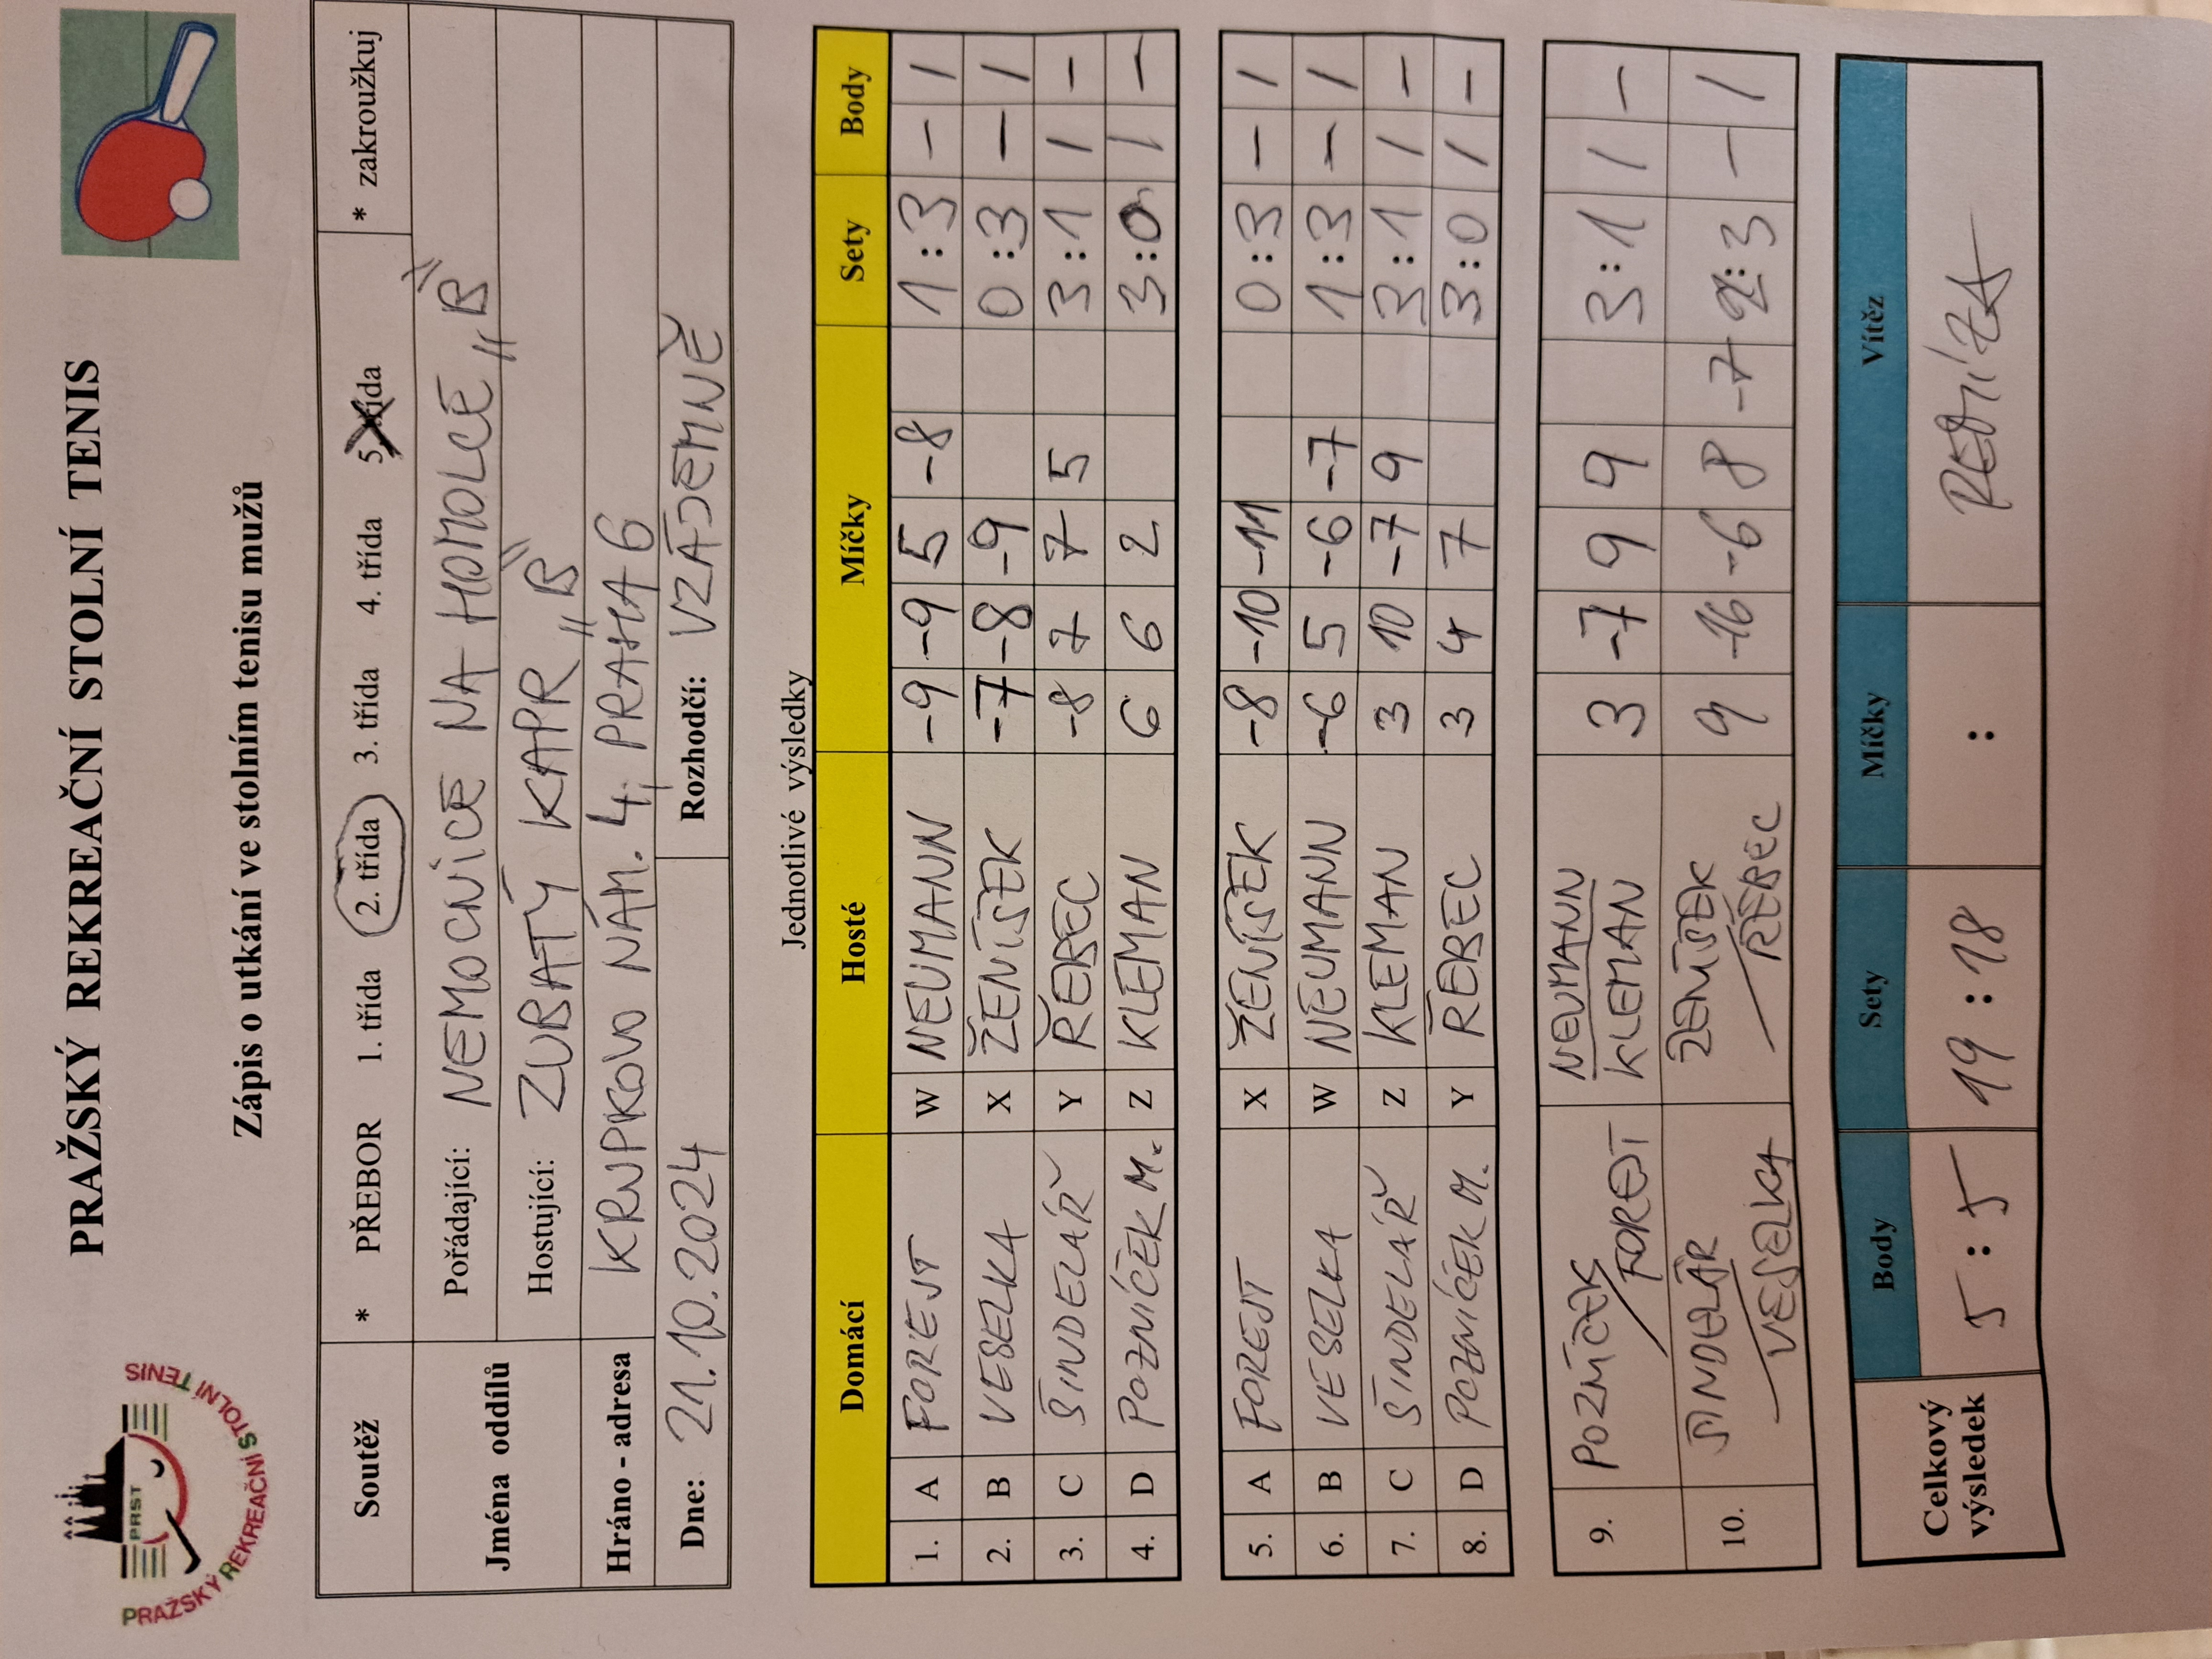 PRAŽSKÝ REKREAČNÍ STOLNÍ TENIS
PRST
PRAŽSKÝ REKREAČNÍ STOLNÍ TENIS
Zápis o utkání ve stolním tenisu mužů
Soutěž * PŘEBOR 1. třída 2. třída 3. třída 4. třída 5. třída * zakroužkuj
Jména oddílů Pořádající: NEMOCNICE NA HOMOLCE „B"
Hostující: ZUBATÝ KAPR „B"
Hráno - adresa KRUPKOVO NÁM. 4, PRAHA 6
Dne: 21.10.2024 Rozhodčí: VZÁJEMNĚ
Jednotlivé výsledky
Domácí Hosté Míčky Sety Body
1. A FOREJT W NEUMANN -9 -9 5 -8 1:3 - 1
2. B VESELKA X ŽENÍŠEK -7 -8 -9 0:3 - 1
3. C ŠINDELÁŘ Y ŘEBEC -8 7 7 5 3:1 1 -
4. D POZNÍČEK M. Z KLEMAN 6 6 2 3:0 1 -
5. A FOREJT X ŽENÍŠEK -8 -10 -11 0:3 - 1
6. B VESELKA W NEUMANN -6 5 -6 -7 1:3 - 1
7. C ŠINDELÁŘ Z KLEMAN 3 10 -7 9 3:1 1 -
8. D POZNÍČEK M. Y ŘEBEC 3 4 7 3:0 1 -
9. POZNÍČEK / FOREJT NEUMANN KLEMAN 3 -7 9 9 3:1 1 -
10. ŠINDELÁŘ / VESELKA ŽENÍŠEK / ŘEBEC 9 -16 -6 8 -7 2:3 - 1
Celkový výsledek Body Sety Míčky Vítěz
5:5 19:18 : REMÍZA